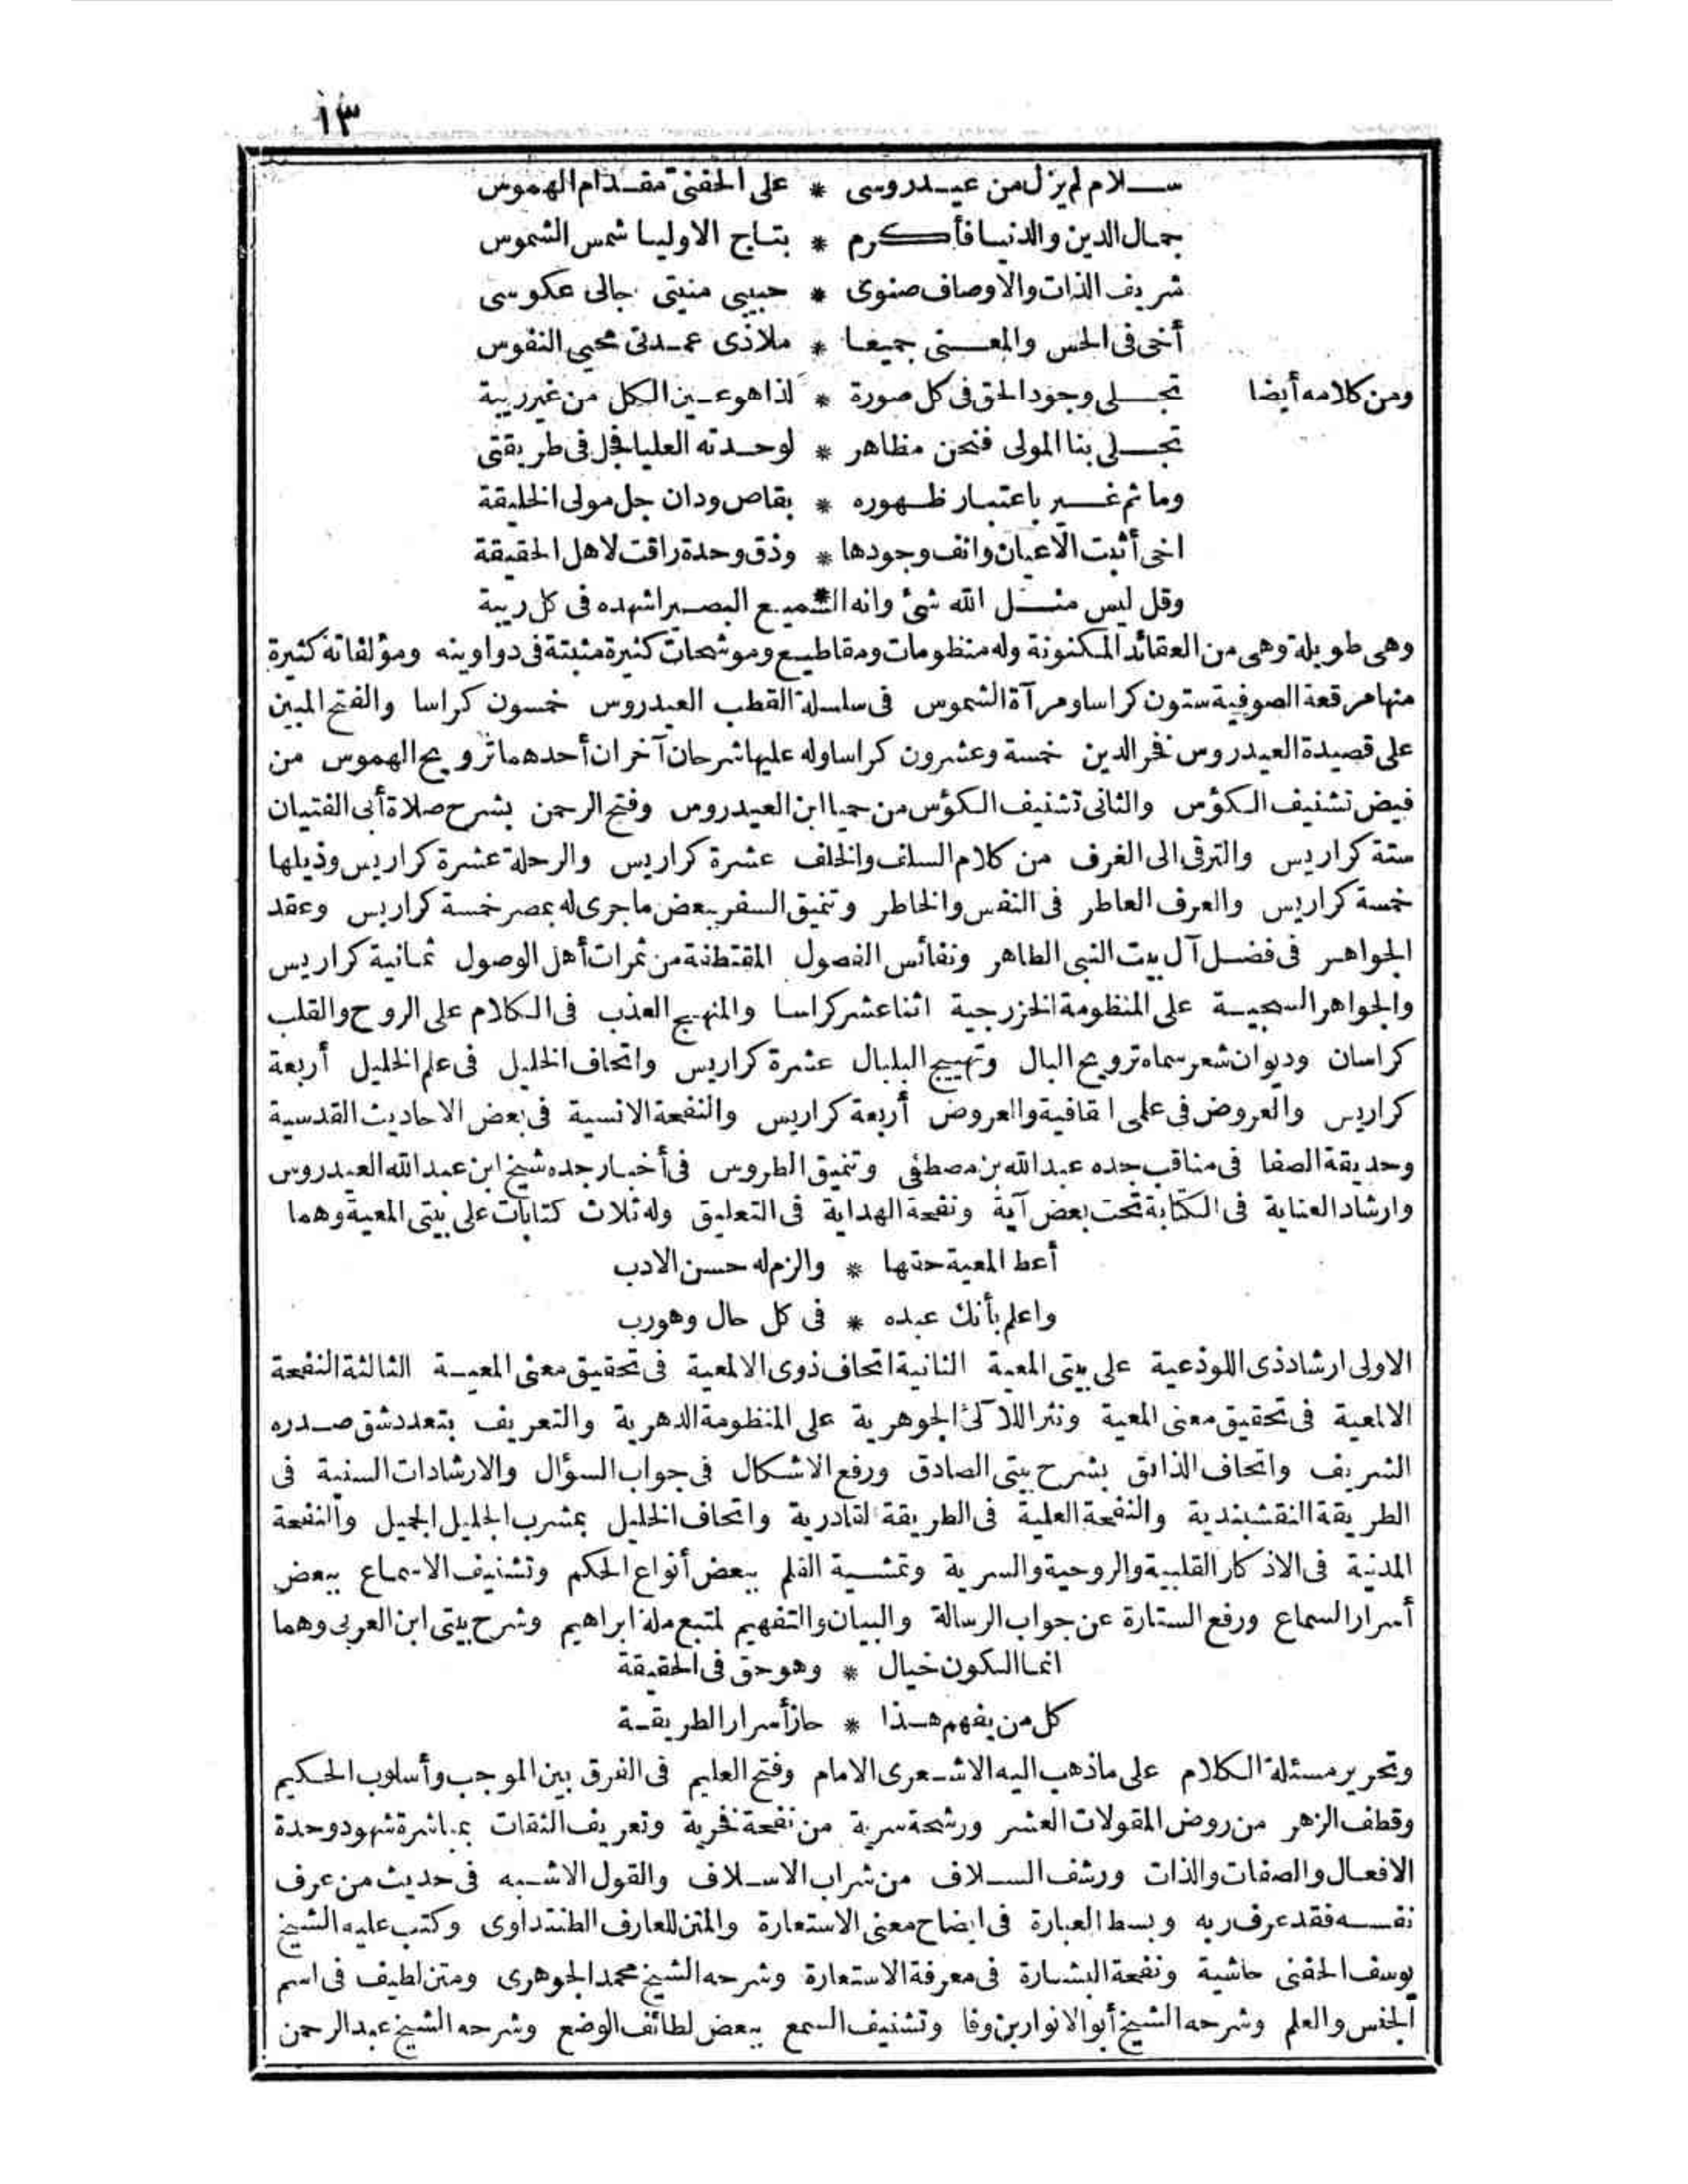 ١٣
سلام لم يزل من عيدروسى * على الحفنى مقدام الهموس
جمال الدين والدنيا فأكرم * بتاج الاوليا شمس الشموس
شريف الذات والاوصاف صنوى * حبيبى منيتى جالى عكوسى
أخى فى الحس والمعنى جميعا * ملاذى عمدتى محيى النفوس
ومن كلامه أيضا تجلى وجود الحق فى كل صورة * لذا هو عين الكل من غير ريبة
تجلى بنا المولى فنحن مظاهر * لوحدته العليا فجل فى طريقتى
وما ثم غير باعتبار ظهوره * بقاص ودان جل مولى الخليقة
اخى أثبت الاعيان وانف وجودها * وذق وحدة راقت لاهل الحقيقة
وقل ليس مثل الله شئ وانه الـ*ـسميع البصير اشهده فى كل ريبة
وهى طويلة وهى من العقائد المكنونة وله منظومات ومقاطيع وموشحات كثيرة مثبتة فى دواوينه ومؤلفاته كثيرة
منها مرقعة الصوفية ستون كراسا ومرآة الشموس فى سلسلة القطب العيدروس خمسون كراسا والفتح المبين
على قصيدة العيدروس فخر الدين خمسة وعشرون كراسا وله عليها شرحان آخران أحدهما ترويح الهموس من
فيض تشنيف الكؤس والثانى تشنيف الكؤس من حميا ابن العيدروس وفتح الرحمن بشرح صلاة أبى الفتيان
ستة كراريس والترقى الى الغرف من كلام السلف والخلف عشرة كراريس والرحلة عشرة كراريس وذيلها
خمسة كراريس والعرف العاطر فى النفس والخاطر وتنميق السفر ببعض ما جرى له بمصر خمسة كراريس وعقد
الجواهر فى فضل آل بيت النبى الطاهر ونفائس الفصول المقتطفة من ثمرات أهل الوصول ثمانية كراريس
والجواهر السبحية على المنظومة الخزرجية اثنا عشر كراسا والمنهج العذب فى الكلام على الروح والقلب
كراسان وديوان شعر سماه ترويح البال وتهييج البلبال عشرة كراريس واتحاف الخليل فى علم الخليل أربعة
كراريس والعروض فى علمى القافية والعروض أربعة كراريس والنفحة الانسية فى بعض الاحاديث القدسية
وحديقة الصفا فى مناقب جده عبد الله بن مصطفى وتنميق الطروس فى أخبار جده شيخ ابن عبد الله العيدروس
وارشاد العناية فى الكتابة تحت بعض آية ونفحة الهداية فى التعليق وله ثلاث كتابات على بيتى المعية وهما
أعط المعية حقها * والزم له حسن الادب
واعلم بأنك عبده * فى كل حال وهو رب
الاولى ارشاد ذى اللوذعية على بيتى المعية الثانية اتحاف ذوى الالمعية فى تحقيق معنى المعية الثالثة النفحة
الالمعية فى تحقيق معنى المعية ونثر اللآلئ الجوهرية على المنظومة الدهرية والتعريف بتعدد شق صدره
الشريف واتحاف الذائق بشرح بيتى الصادق ورفع الاشكال فى جواب السؤال والارشادات السنية فى
الطريقة النقشبندية والنفحة العلية فى الطريقة القادرية واتحاف الخليل بمشرب الجليل الجميل والنفحة
المدنية فى الاذكار القلبية والروحية والسرية وتمشية القلم ببعض أنواع الحكم وتشنيف الاسماع ببعض
أسرار السماع ورفع الستارة عن جواب الرسالة والبيان والتفهيم لمتبع ملة ابراهيم وشرح بيتى ابن العربى وهما
انما الكون خيال * وهو حق فى الحقيقة
كل من يفهم هذا * حاز أسرار الطريقة
وتحرير مسئلة الكلام على ما ذهب اليه الاشعرى الامام وفتح العليم فى الفرق بين الموجب وأسلوب الحكيم
وقطف الزهر من روض المقولات العشر ورشحة سرية من نفحة فخرية وتعريف الثقات بمباشرة شهود وحدة
الافعال والصفات والذات ورشف السلاف من شراب الاسلاف والقول الاشبه فى حديث من عرف
نفسه فقد عرف ربه وبسط العبارة فى ايضاح معنى الاستعارة والمتن للعارف الطنتداوى وكتب عليه الشيخ
يوسف الحفنى حاشية ونفحة البشارة فى معرفة الاستعارة وشرحه الشيخ محمد الجوهرى ومتن لطيف فى اسم
الجنس والعلم وشرحه الشيخ أبو الانوار بن وفا وتشنيف السمع ببعض لطائف الوضع وشرحه الشيخ عبد الرحمن